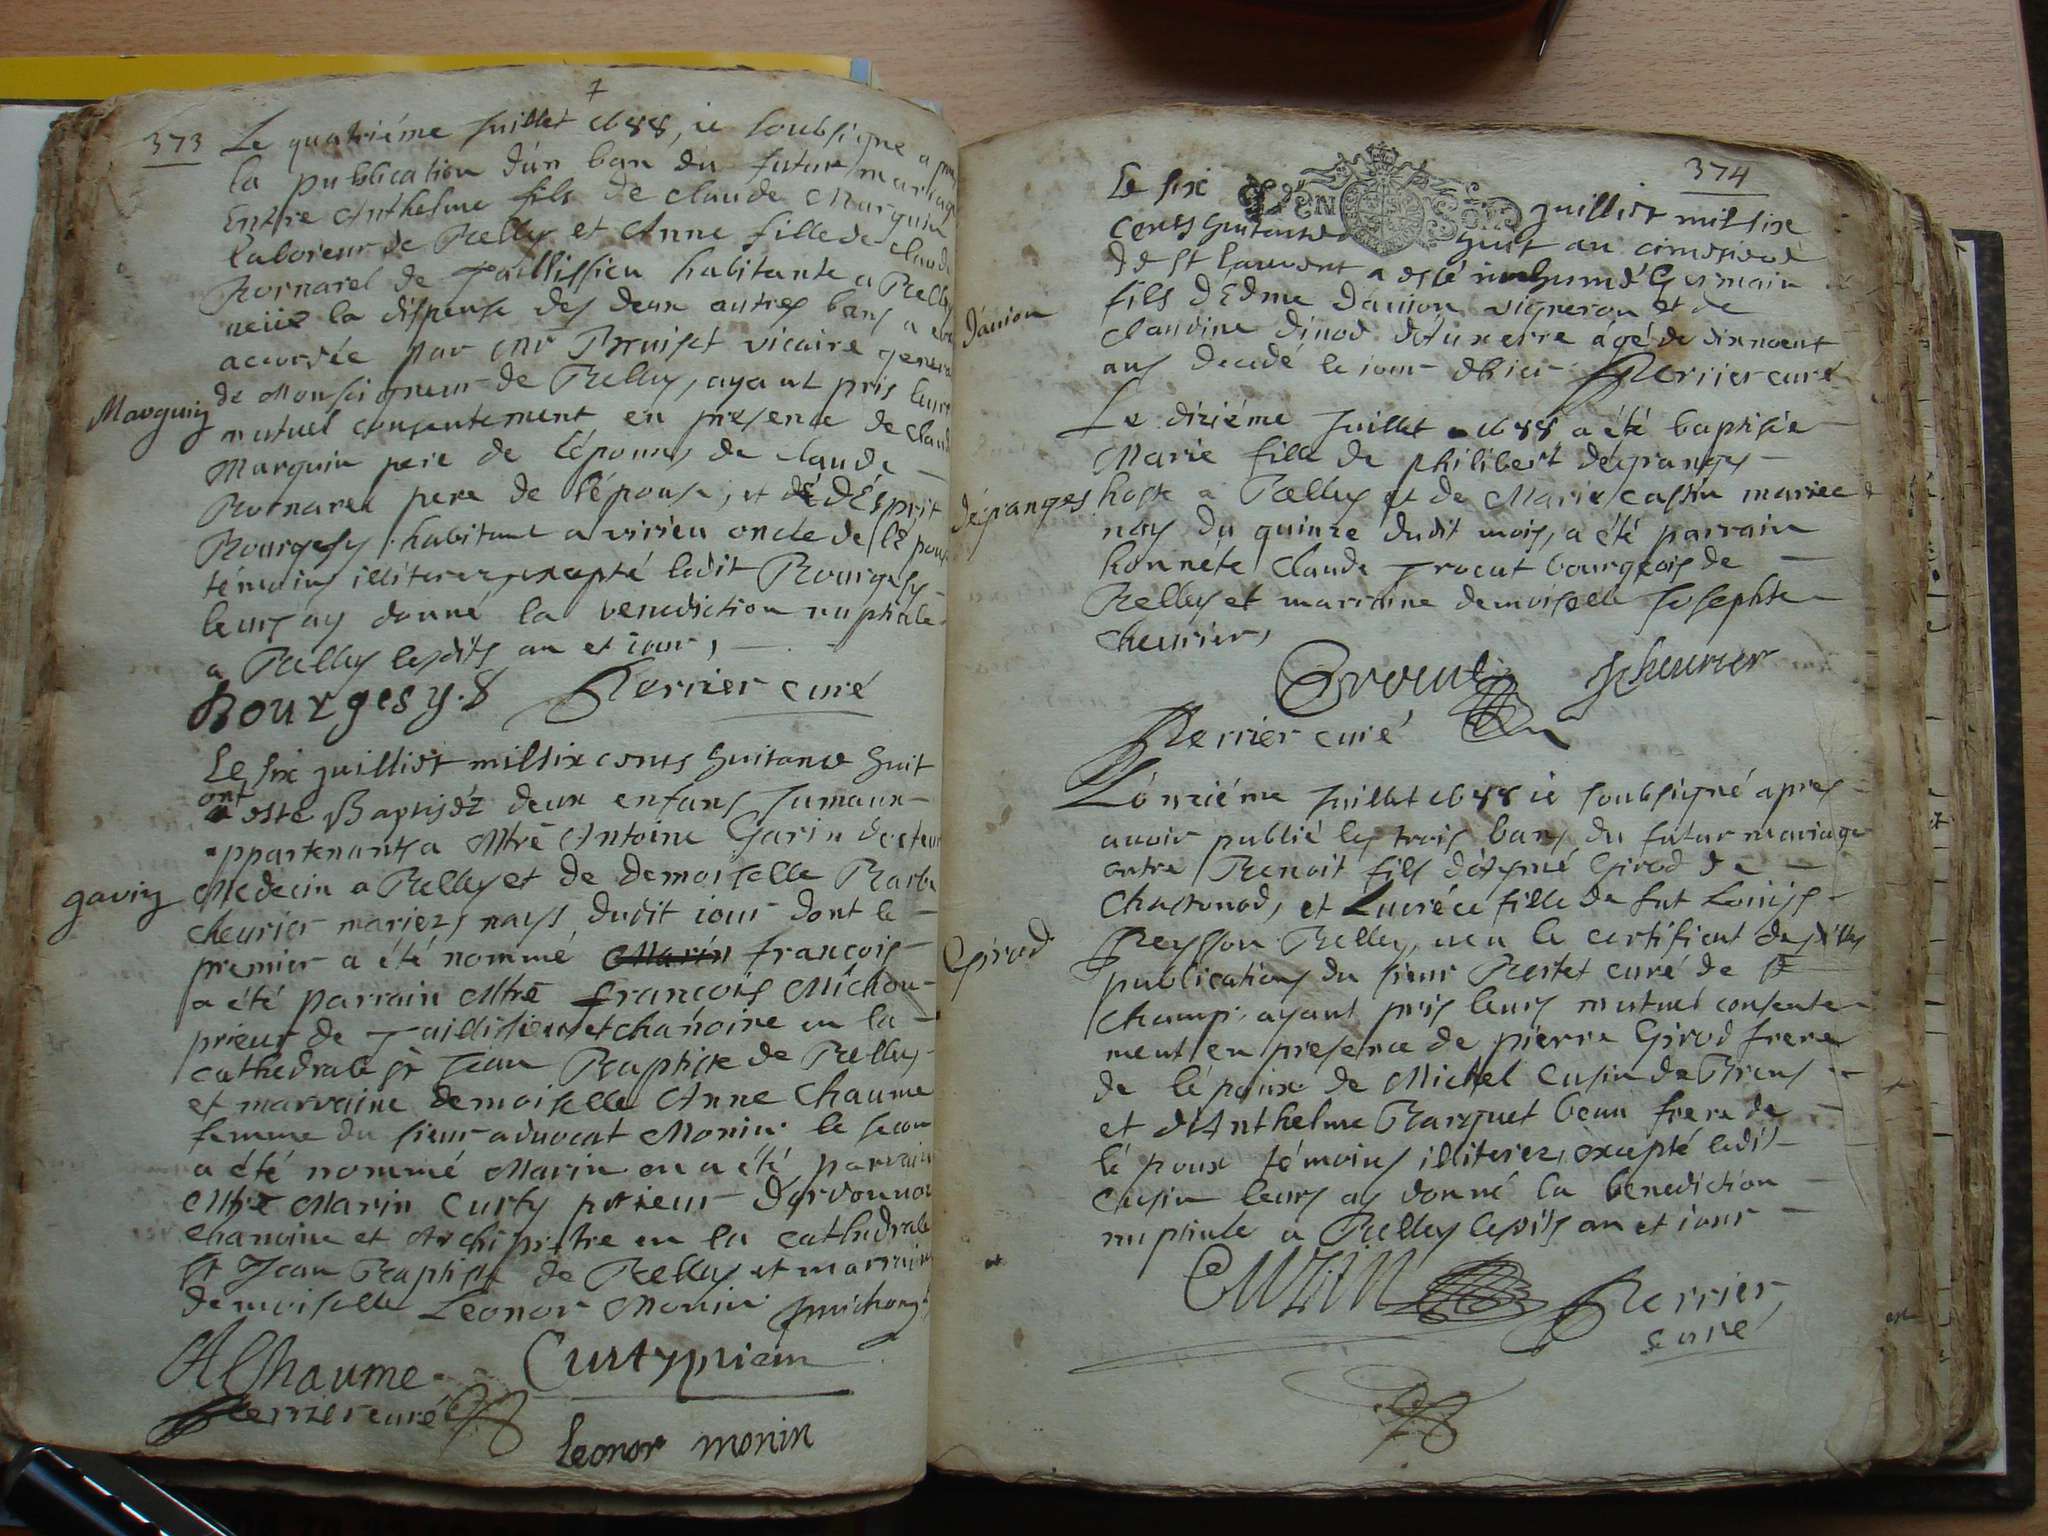 7
373
Le quatriéme Juillet 1688, ie soubsigné apres
la publication d'un ban du futur mariage
Entre Anthelme fils de claude Marguin
laboreur de Belley et Anne fille de claude
Bornarel de Taillissieu habitante a Belley
la dispense des deux autres bans a
accordée par Mr Bruiset vicaire general
de Monseigneur de Belley, ayant pris leurs
Marguin
mutuel consentement en presence de claude
Marguin pere de l'époux, de claude
Bornarel pere de l'épouse, et d'Esprit
Bourgesy habitant a virieu oncle de l'épouse
témoins illiterez, excepté ledit Bourgesy
leurs ay donné la benediction nuptiale
a Belley lesdits an et iour,
Bourgesy.
Perrier curé
Le six juilliet mil six cents huitante huit
ont
esté Baptiséz deux enfans Jumaux
appartenants a Mtre Antoine Garin docteur
Garin
Medecin a Belley et de demoiselle Barbe
cheurier mariez, nays dudit iour dont le
premier a été nommé françois
a été parrain Mtre françois Michou
prieur de Taillissieu et chanoine en la
cathedrale st Jean Baptiste de Belley
et marraine demoiselle Anne Chaume
femme du sieur advocat Monin le secon
a été nommé Marin en a été parrain
Mtre Marin Curty prieur d'ardonnou
chanoine et Archiprêtre en la cathedrale
st Jean Baptiste de Belley et marraine
demoiselle Leonor Monin
AChaume
Perrier curé
Leonor monin
374
Le six juilliet mil six
cents huitante huit au cimetiere
de st Laurent a esté inhumé Germain
fils d'Edme Danion vigneron et de
Danion
claudine dinod d'Auxerre âgé de dixneuf
ans decedé le iour d'hier Perrier curé
Le diziéme Juillet 1688 a été baptisée
Marie fille de philibert desgranges
desgranges
hoste a Belley et de Marie cassin mariez
nay du quinze dudit mois, a été parrain
honnéte Claude Trocut bourgeois de
Belley et marraine demoiselle Josephte
cheurier,
Trocut
JCheurier
Perrier curé
L'onziéme Juillet 1688 ie soubsigné apres
avoir publié les trois bans du futur mariage
entre Benoit fils d'Aymé Girod de
Chastonod, et Lucréce fille de fut Louis
Girod
Peysson Belley, veu le certificat desdites
publications du sieur Bertet curé de st
champ, ayant pris leurs mutuel consente
ment en presence de pierre Girod frere
de l'époux de Michel Cusin de Brens
et d'Anthelme Barquet beau frere de
l'époux témoins illiterez, excepté ledit
Cusin leurs ay donné la benediction
nuptiale a Belley lesdits an et iour
CUZIN
Perrier
curé